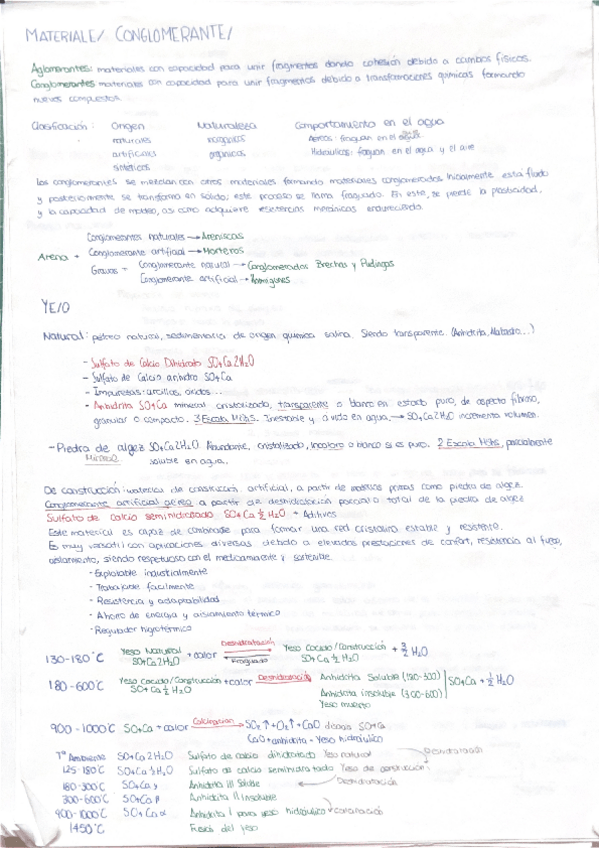 MATERIALES CONGLOMERANTES
Aglomerantes: materiales con capacidad para unir fragmentos dando cohesión debido a cambios físicos.
Conglomerantes materiales con capacidad para unir fragmentos debido a transformaciones químicas formando
nuevos compuestos.
Clasificación: Origen Naturaleza Comportamiento en el agua
naturales inorgánicos Aéreos: fraguan en el
artificiales orgánicos Hidráulicos: fraguan en el agua y el aire
sintéticos
Los conglomerantes se mezclan con otros materiales formando materiales conglomerados. Inicialmente esta fluido
y posteriormente se transforma en sólido, este proceso se llama fraguado. En este, se pierde la plasticidad,
y la capacidad de moldeo, así como adquiere resistencias mecánicas endureciendo.
Conglomerantes naturales → Areniscas
Arena + Conglomerante artificial → Morteros
Gravas + Conglomerante natural → Conglomerados Brechas y Pudingas
Conglomerante artificial → Hormigones
YESO
Natural: pétreo natural, sedimentario de origen químico salina. Siendo transparente. (Anhidrita, Alabastro...)
- Sulfato de Calcio Dihidrato SO4Ca2H2O
- Sulfato de Calcio anhidro SO4Ca
- Impurezas: arcillas, óxidos...
- Anhidrita SO4Ca mineral cristalizado, transparente o blanco en estado puro, de aspecto fibroso,
granular o compacto. 3 Escala Mohs. Inestable y ávida en agua. → SO4Ca2H2O incrementa volumen.
- Piedra de algez SO4Ca2H2O Abundante, cristalizado, incoloro o blanco si es puro. 2 Escala Mohs, parcialmente
Mineral soluble en agua.
De construcción: material de construcción, artificial, a partir de materias primas como piedra de algez.
Conglomerante artificial aéreo a partir de deshidratación parcial o total de la piedra de algez
Sulfato de calcio semihidratado SO4Ca½H2O + Aditivos
Este material es capaz de combinarse para formar una red cristalina estable y resistente.
Es muy versátil con aplicaciones diversas debido a elevadas prestaciones de confort, resistencia al fuego,
aislamiento, siendo respetuoso con el medioambiente y sostenible.
- Explotable industrialmente
- Trabajable fácilmente
- Resistencia y adaptabilidad
- Ahorro de energía y aislamiento térmico
- Regulador higrotérmico
130-180°C Yeso Natural SO4Ca2H2O + calor Deshidratación Fraguado Yeso Cocido/Construcción SO4Ca½H2O + 3/2 H2O
180-600°C Yeso Cocido/Construcción SO4Ca½H2O + calor Deshidratación Anhidrita Soluble (180-300) SO4Ca + ½H2O
Anhidrita insoluble (300-600)
Yeso muerto
900-1000°C SO4Ca + calor Calcinación → SO2↑ + O2↑ + CaO SO4Ca
CaO + anhidrita = Yeso hidráulico
Tª Ambiente SO4Ca2H2O Sulfato de calcio dihidratado Yeso natural Deshidratación
125-180°C SO4Ca½H2O Sulfato de calcio semihidratado Yeso de construcción
180-300°C SO4Ca γ Anhidrita III Soluble Deshidratación
300-600°C SO4Ca β Anhidrita II Insoluble
900-1000°C SO4Ca α Anhidrita I para yeso hidráulico Calcinación
1450°C Fusión del yeso